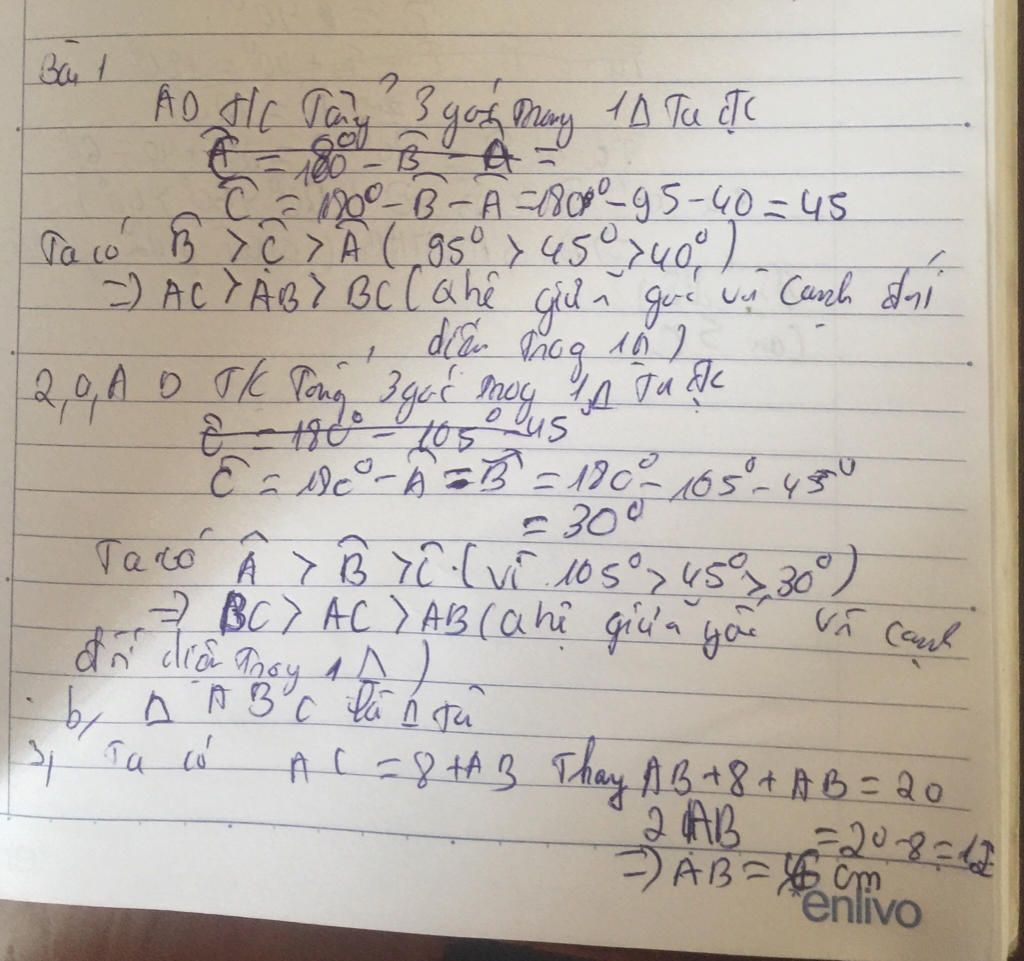 Bài 1
AD T/C Tổng 3 góc trong 1Δ Ta đc
Ĉ = 180° - B̂ - Â =
Ĉ = 180° - B̂ - Â = 180° - 95 - 40 = 45
Ta có B̂ > Ĉ > Â ( 95° > 45° > 40° )
=> AC > AB > BC ( qhệ giữa góc và cạnh đối
diện trog 1Δ )
2, a, A D T/C Tổng 3 góc trog 1Δ Ta đc
Ĉ = 180° - 105° - 45
Ĉ = 180° - Â - B̂ = 180° - 105° - 45°
= 30°
Ta có Â > B̂ > Ĉ. ( vì 105° > 45° > 30° )
=> BC > AC > AB ( qhệ giữa góc và cạnh
đối diện trog 1 Δ )
b, Δ A B C là Δ tù
3, Ta có AC = 8 + AB Thay AB + 8 + AB = 20
2 AB = 20 - 8 = 12
=> AB = 6 cm
enlivo